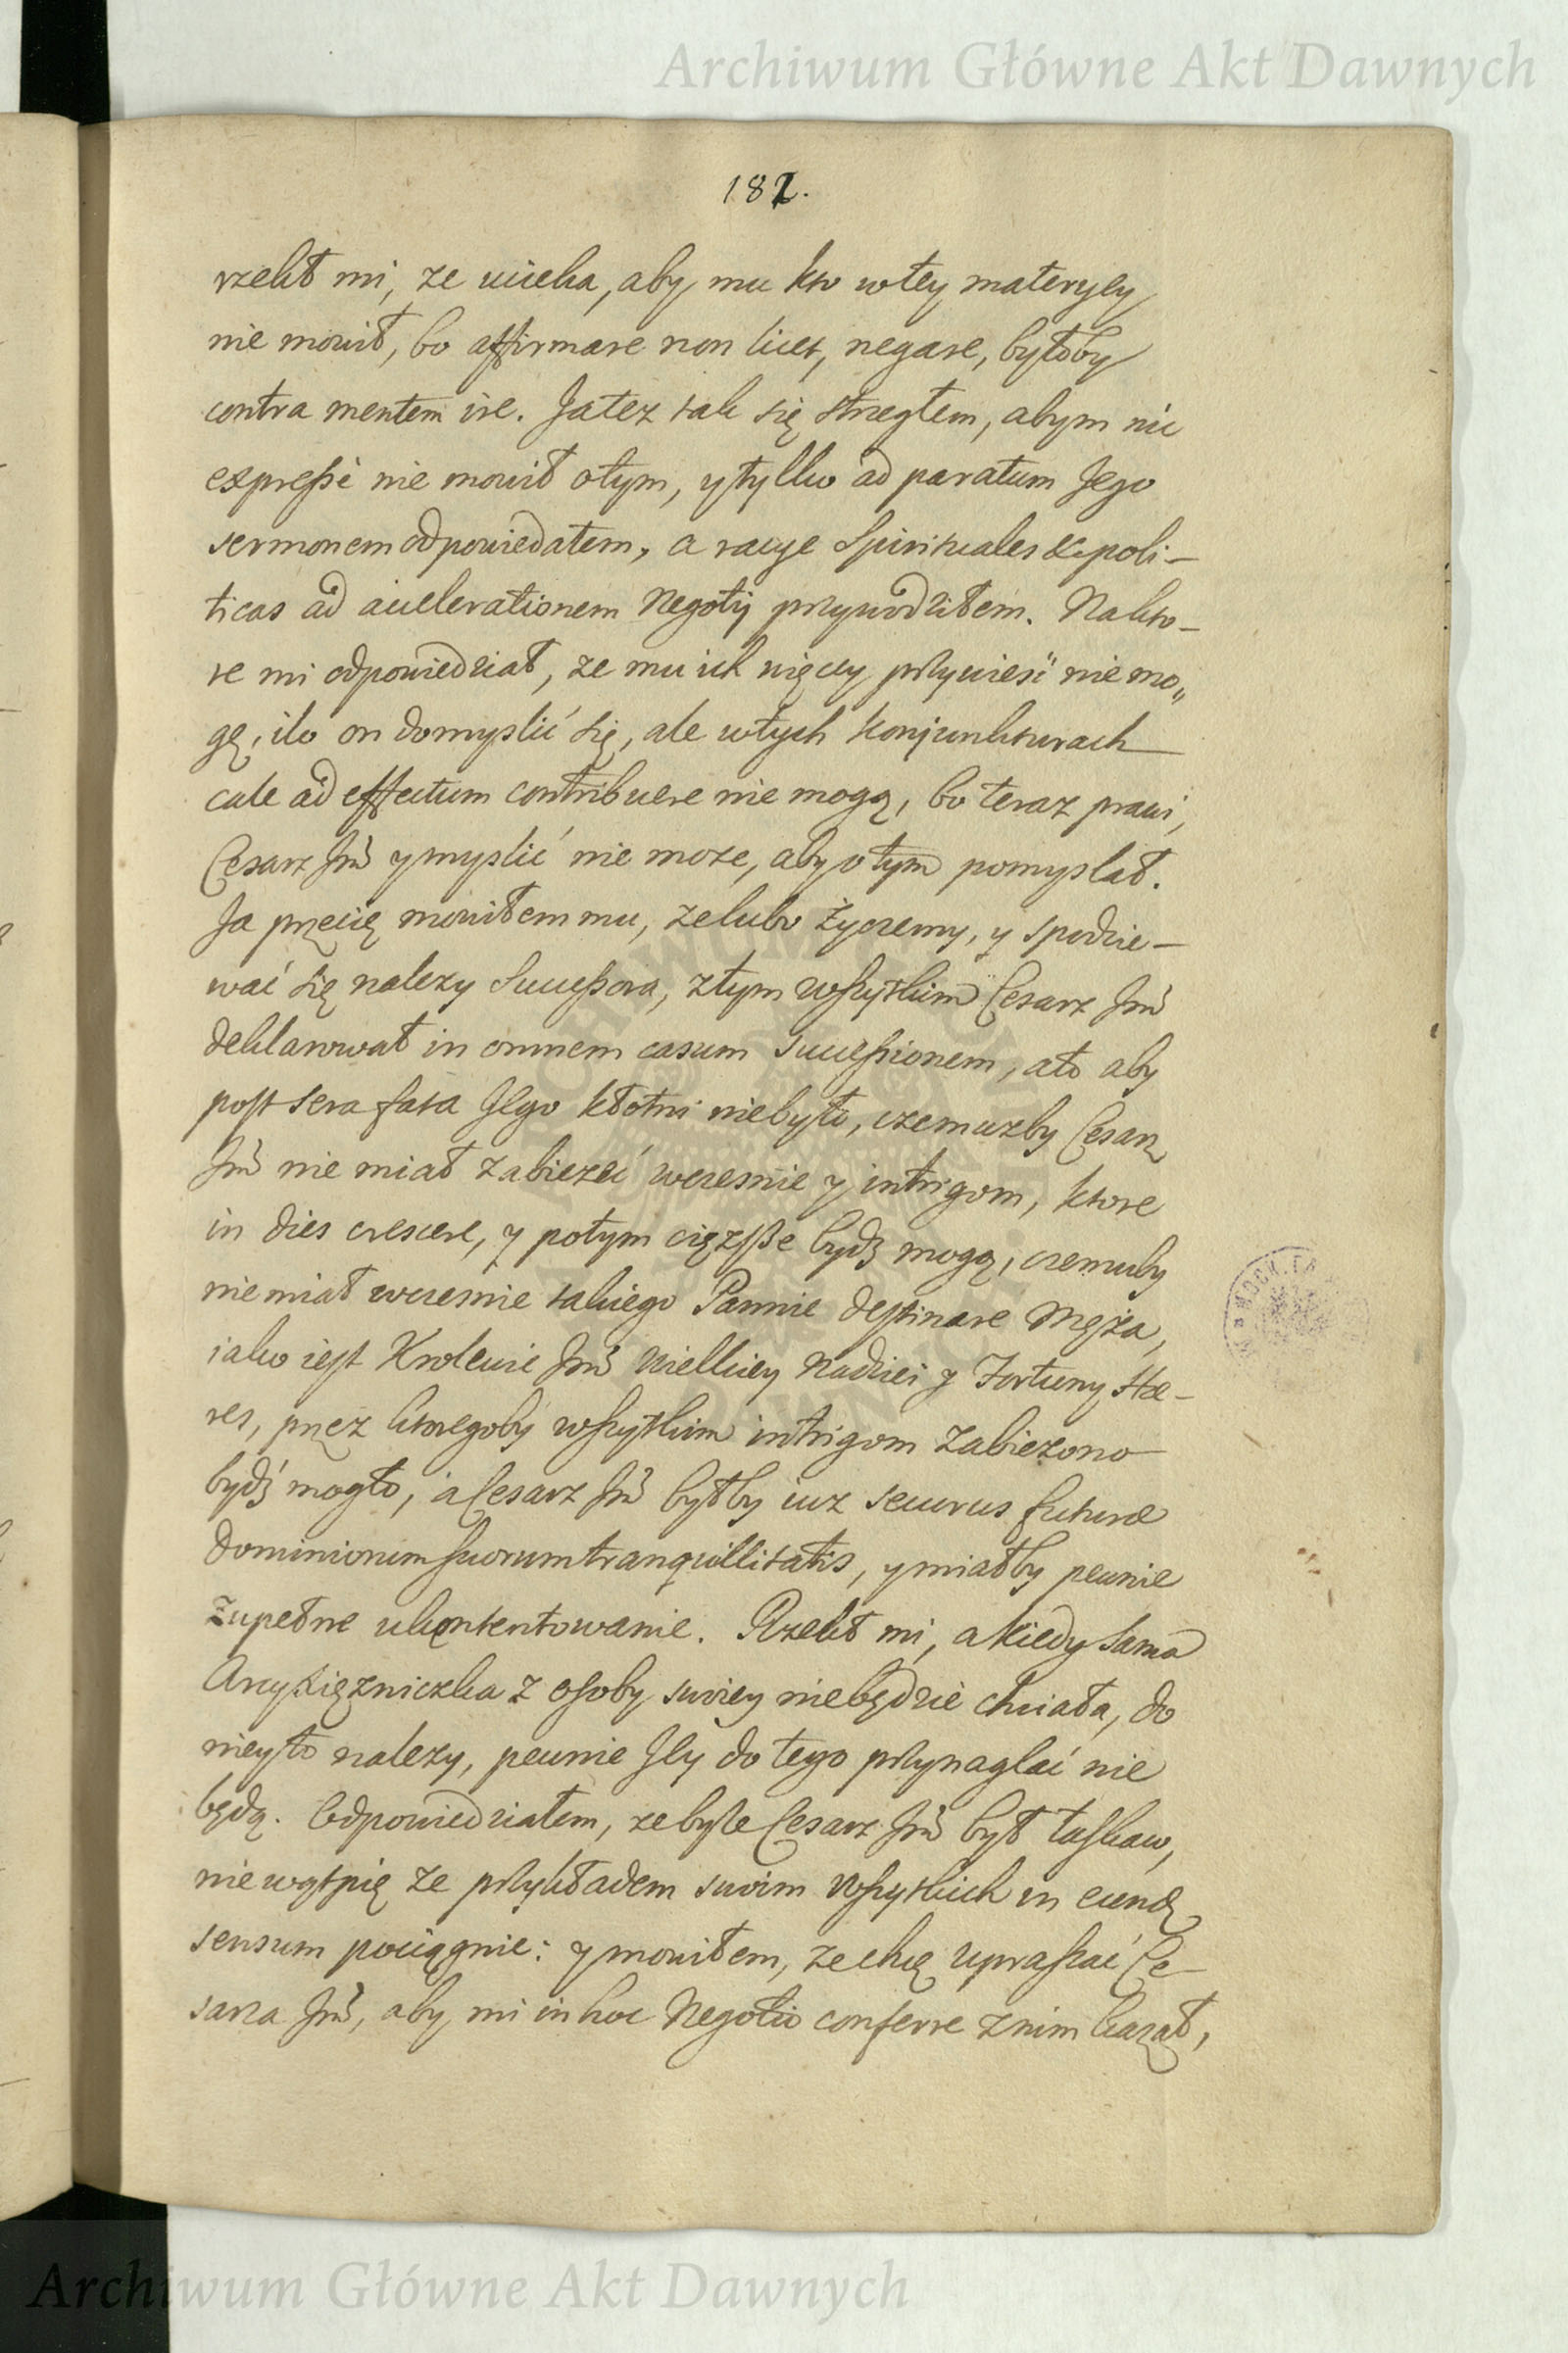 Archiwum Główne Akt Dawnych
182.
rzekł mi, ze ucieka, aby mu kto wtey materyey
nie mowił, bo affirmare non licet, negare, byłoby
contra mentem ire. Ja tez tak się strzegłem, abym nic
expressè nie mowił otym, y tylko ad paratum Jego
sermonem odpowiedałem, a racye Spirituales & poli-
ticas ad accelerationem Negotij przywodziłem. Nakto-
re mi odpowiedział, ze mu ich więcey przynieść nie mo„
gę, ile on domyslić się, ale wtych konjunkturach
cale ad effectum contribuere nie mogą, bo teraz prawi,
Cesarz Jmć y myslić nie moze, aby o tym pomyslał.
Ja przecię mowiłem mu, ze lubo życzemy, y spodzie-
wać się nalezy Successora, z tym wszytkim Cesarz Jmć
deklarował in omnem casum successionem, a to aby
post sera fata Jego kłotni niebyło, czemuzby Cesarz
Jmć nie miał zabiezeć wczesnie y intrigom, ktore
in dies crescere, y potym cięzsze bydz mogą, czemuby
nie miał wczesnie takiego Pannie destinare Męża,
iako iest Krolewic Jmć wielkiey Nadziei y Fortuny Hæ-
res, przez ktoregoby wszytkim intrigom zabiezono
bydź mogło, a Cesarz Jmć byłby iuz securus futuræ
Dominiorum suorum tranquillitatis, y miałby pewnie
zupełne ukontentowanie. Rzekł mi, a kiedy sama
Arcyxiężniczka z osoby swoiey niebędzie chciała, do
niey to nalezy, pewnie Jey do tego przynaglać nie
będą. Odpowiedziałem, ze byle Cesarz Jmć był łaskaw,
nie wątpię ze przykładem swoim wszytkich in eundẽ
sensum pociągnie: y mowiłem, ze chcę upraszać Ce-
sarza Jmć, aby mi in hoc Negotio conferre znim kazał,
Archiwum Główne Akt Dawnych